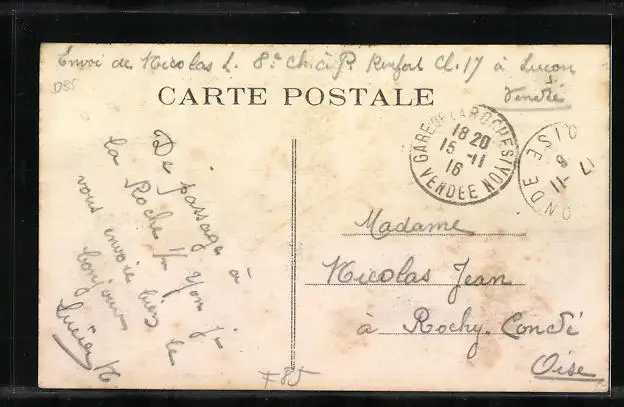 Envoi de Nicolas L. 8e ch. à P. Renfort Cl. 17 à Luçon
Vendée
D85
CARTE POSTALE
GARE DE LA ROCHE S YON
18 20
15 -11
16
VENDEE
OISE
17 -11
ONDE
De passage à
la Roche s/ Yon je
vous envoie bien le
bonjour
Lucien N.
Madame
Nicolas Jean
à Rochy-Condé
Oise
F85